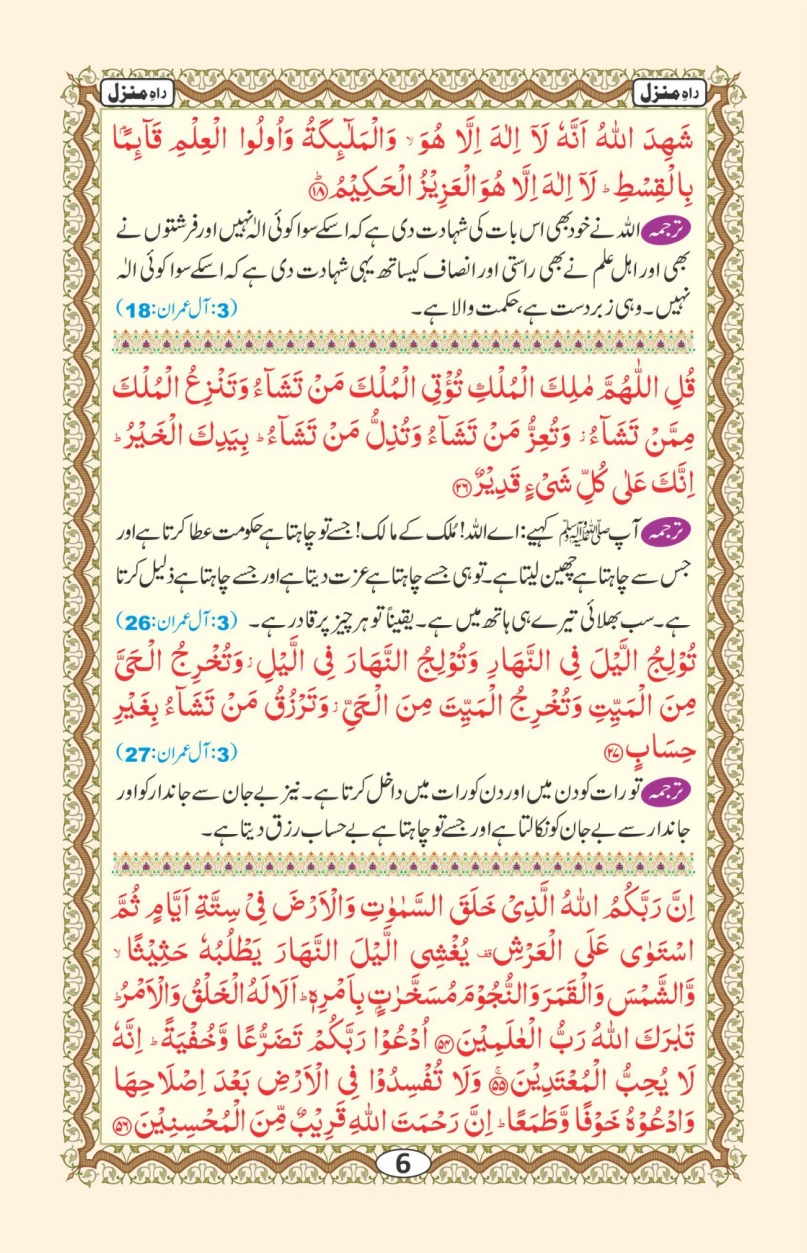 راہِ منزل
راہِ منزل
شَهِدَ اللّٰهُ اَنَّهٗ لَاۤ اِلٰهَ اِلَّا هُوَ ۙ وَالْمَلٰٓىِٕكَةُ وَاُولُوا الْعِلْمِ قَآىِٕمًۢا
بِالْقِسْطِ ؕ لَاۤ اِلٰهَ اِلَّا هُوَ الْعَزِیْزُ الْحَكِیْمُ ؕ۝۱۸
ترجمہ اللہ نے خود بھی اس بات کی شہادت دی ہے کہ اسکے سوا کوئی الٰہ نہیں اور فرشتوں نے
بھی اور اہل علم نے بھی راستی اور انصاف کیساتھ یہی شہادت دی ہے کہ اسکے سوا کوئی الٰہ
نہیں۔ وہی زبردست ہے، حکمت والا ہے۔ (3: آل عمران:18)
قُلِ اللّٰهُمَّ مٰلِكَ الْمُلْكِ تُؤْتِی الْمُلْكَ مَنْ تَشَآءُ وَتَنْزِعُ الْمُلْكَ
مِمَّنْ تَشَآءُ ؗ وَتُعِزُّ مَنْ تَشَآءُ وَتُذِلُّ مَنْ تَشَآءُ ؕ بِیَدِكَ الْخَیْرُ ؕ
اِنَّكَ عَلٰی كُلِّ شَیْءٍ قَدِیْرٌ۝۲۶
ترجمہ آپ ﷺ کہیے: اے اللہ! مُلک کے مالک! جسے تو چاہتا ہے حکومت عطا کرتا ہے اور
جس سے چاہتا ہے چھین لیتا ہے۔ تو ہی جسے چاہتا ہے عزت دیتا ہے اور جسے چاہتا ہے ذلیل کرتا
ہے۔ سب بھلائی تیرے ہی ہاتھ میں ہے۔ یقیناً تو ہر چیز پر قادر ہے۔ (3: آل عمران:26)
تُوْلِجُ الَّیْلَ فِی النَّهَارِ وَتُوْلِجُ النَّهَارَ فِی الَّیْلِ ؗ وَتُخْرِجُ الْحَیَّ
مِنَ الْمَیِّتِ وَتُخْرِجُ الْمَیِّتَ مِنَ الْحَیِّ ؗ وَتَرْزُقُ مَنْ تَشَآءُ بِغَیْرِ
حِسَابٍ۝۲۷ (3: آل عمران:27)
ترجمہ تو رات کو دن میں اور دن کو رات میں داخل کرتا ہے۔ نیز بے جان سے جاندار کو اور
جاندار سے بے جان کو نکالتا ہے اور جسے تو چاہتا ہے بے حساب رزق دیتا ہے۔
اِنَّ رَبَّكُمُ اللّٰهُ الَّذِیْ خَلَقَ السَّمٰوٰتِ وَالْاَرْضَ فِیْ سِتَّةِ اَیَّامٍ ثُمَّ
اسْتَوٰی عَلَی الْعَرْشِ ۫ یُغْشِی الَّیْلَ النَّهَارَ یَطْلُبُهٗ حَثِیْثًا ۙ
وَّالشَّمْسَ وَالْقَمَرَ وَالنُّجُوْمَ مُسَخَّرٰتٍۭ بِاَمْرِهٖ ؕ اَلَا لَهُ الْخَلْقُ وَالْاَمْرُ ؕ
تَبٰرَكَ اللّٰهُ رَبُّ الْعٰلَمِیْنَ۝۵۴ اُدْعُوْا رَبَّكُمْ تَضَرُّعًا وَّخُفْیَةً ؕ اِنَّهٗ
لَا یُحِبُّ الْمُعْتَدِیْنَ ۚ۝۵۵ وَلَا تُفْسِدُوْا فِی الْاَرْضِ بَعْدَ اِصْلَاحِهَا
وَادْعُوْهُ خَوْفًا وَّطَمَعًا ؕ اِنَّ رَحْمَتَ اللّٰهِ قَرِیْبٌ مِّنَ الْمُحْسِنِیْنَ۝۵۶
6